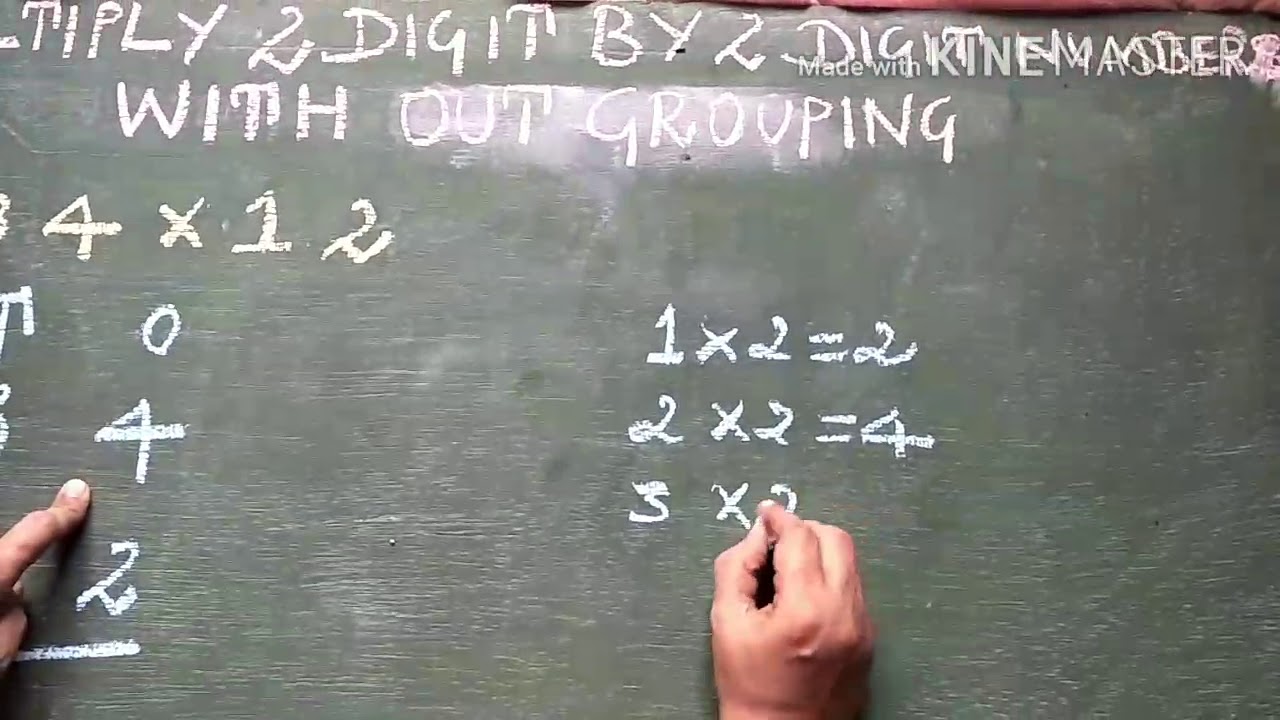 TIPLY 2 DIGIT BY 2 DIGIT
Made with KINEMASTER
WITH OUT GROUPING
3 4 × 1 2
T 0
3 4
2
1 × 2 = 2
2 × 2 = 4
3 × 2